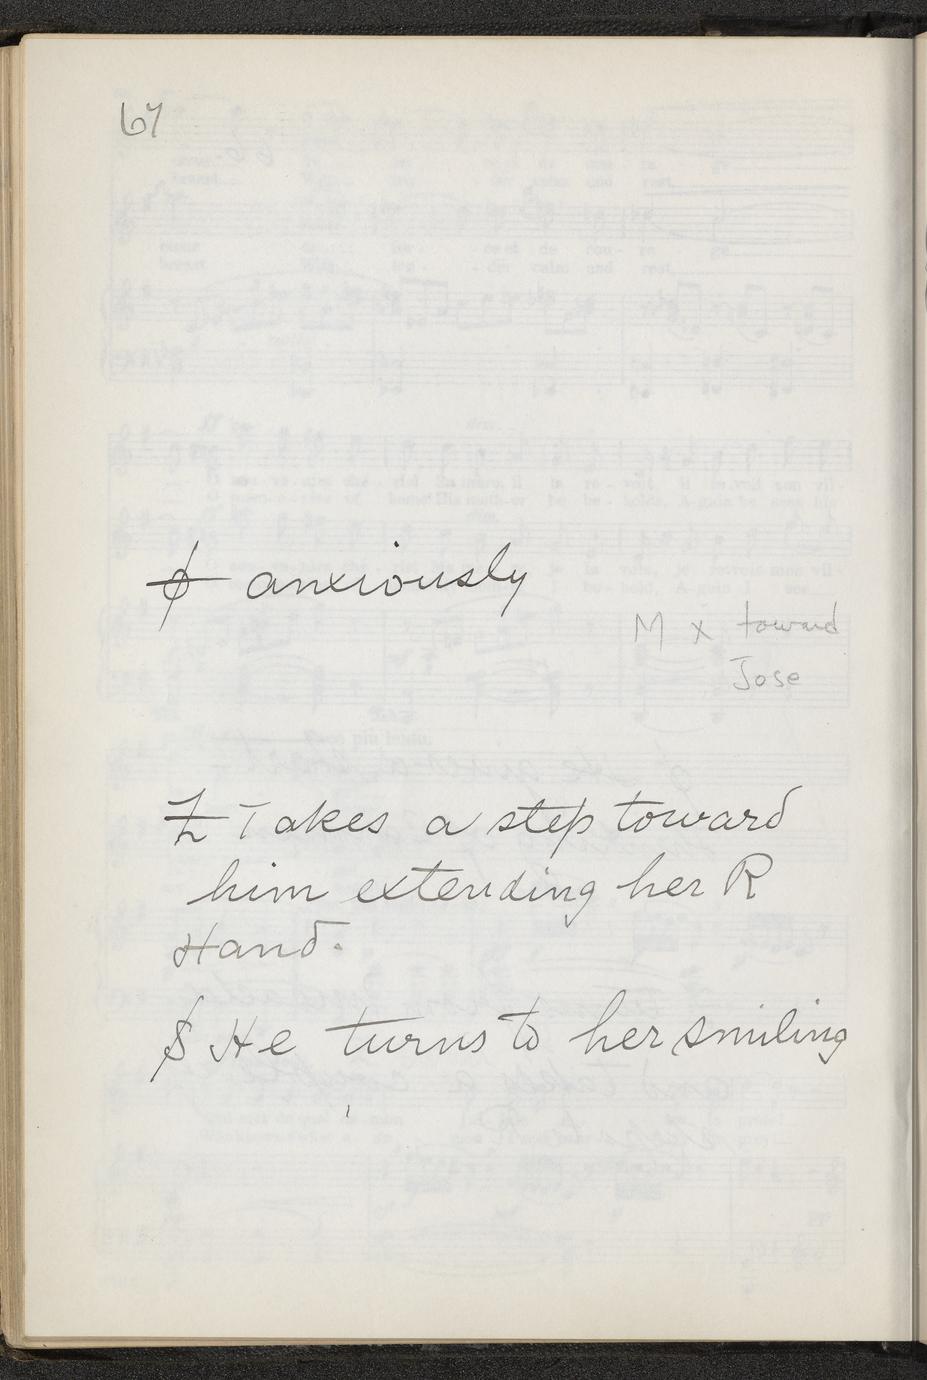 67
ϕ anxiously
M x toward
Jose
Ƶ Takes a step toward
him extending her R
Hand.
$ He turns to her smiling